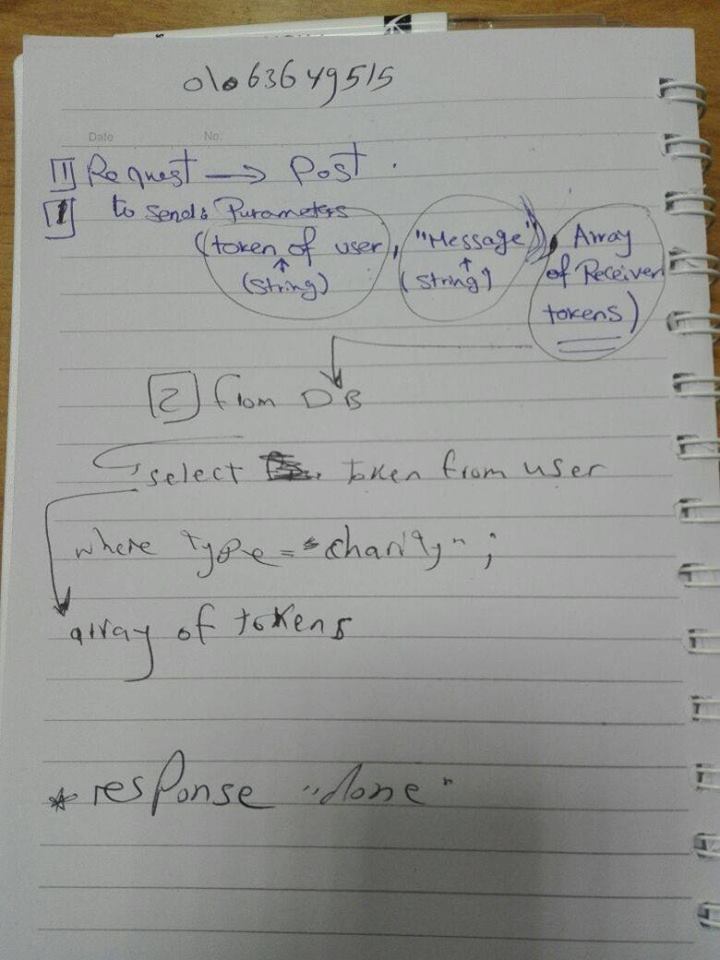 01063649515
Date No.
[1] Request → Post .
[1] to send: Parameters
(token of user, "Message"), Array
↑ ↑ of Receiver
(string) (string) tokens)
[2] from DB
select token from user
where type = "charity" ;
array of tokens
* response "done"